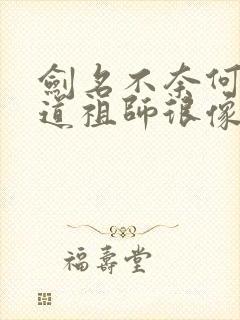 劍名不奈何
道祖師很像
福壽堂